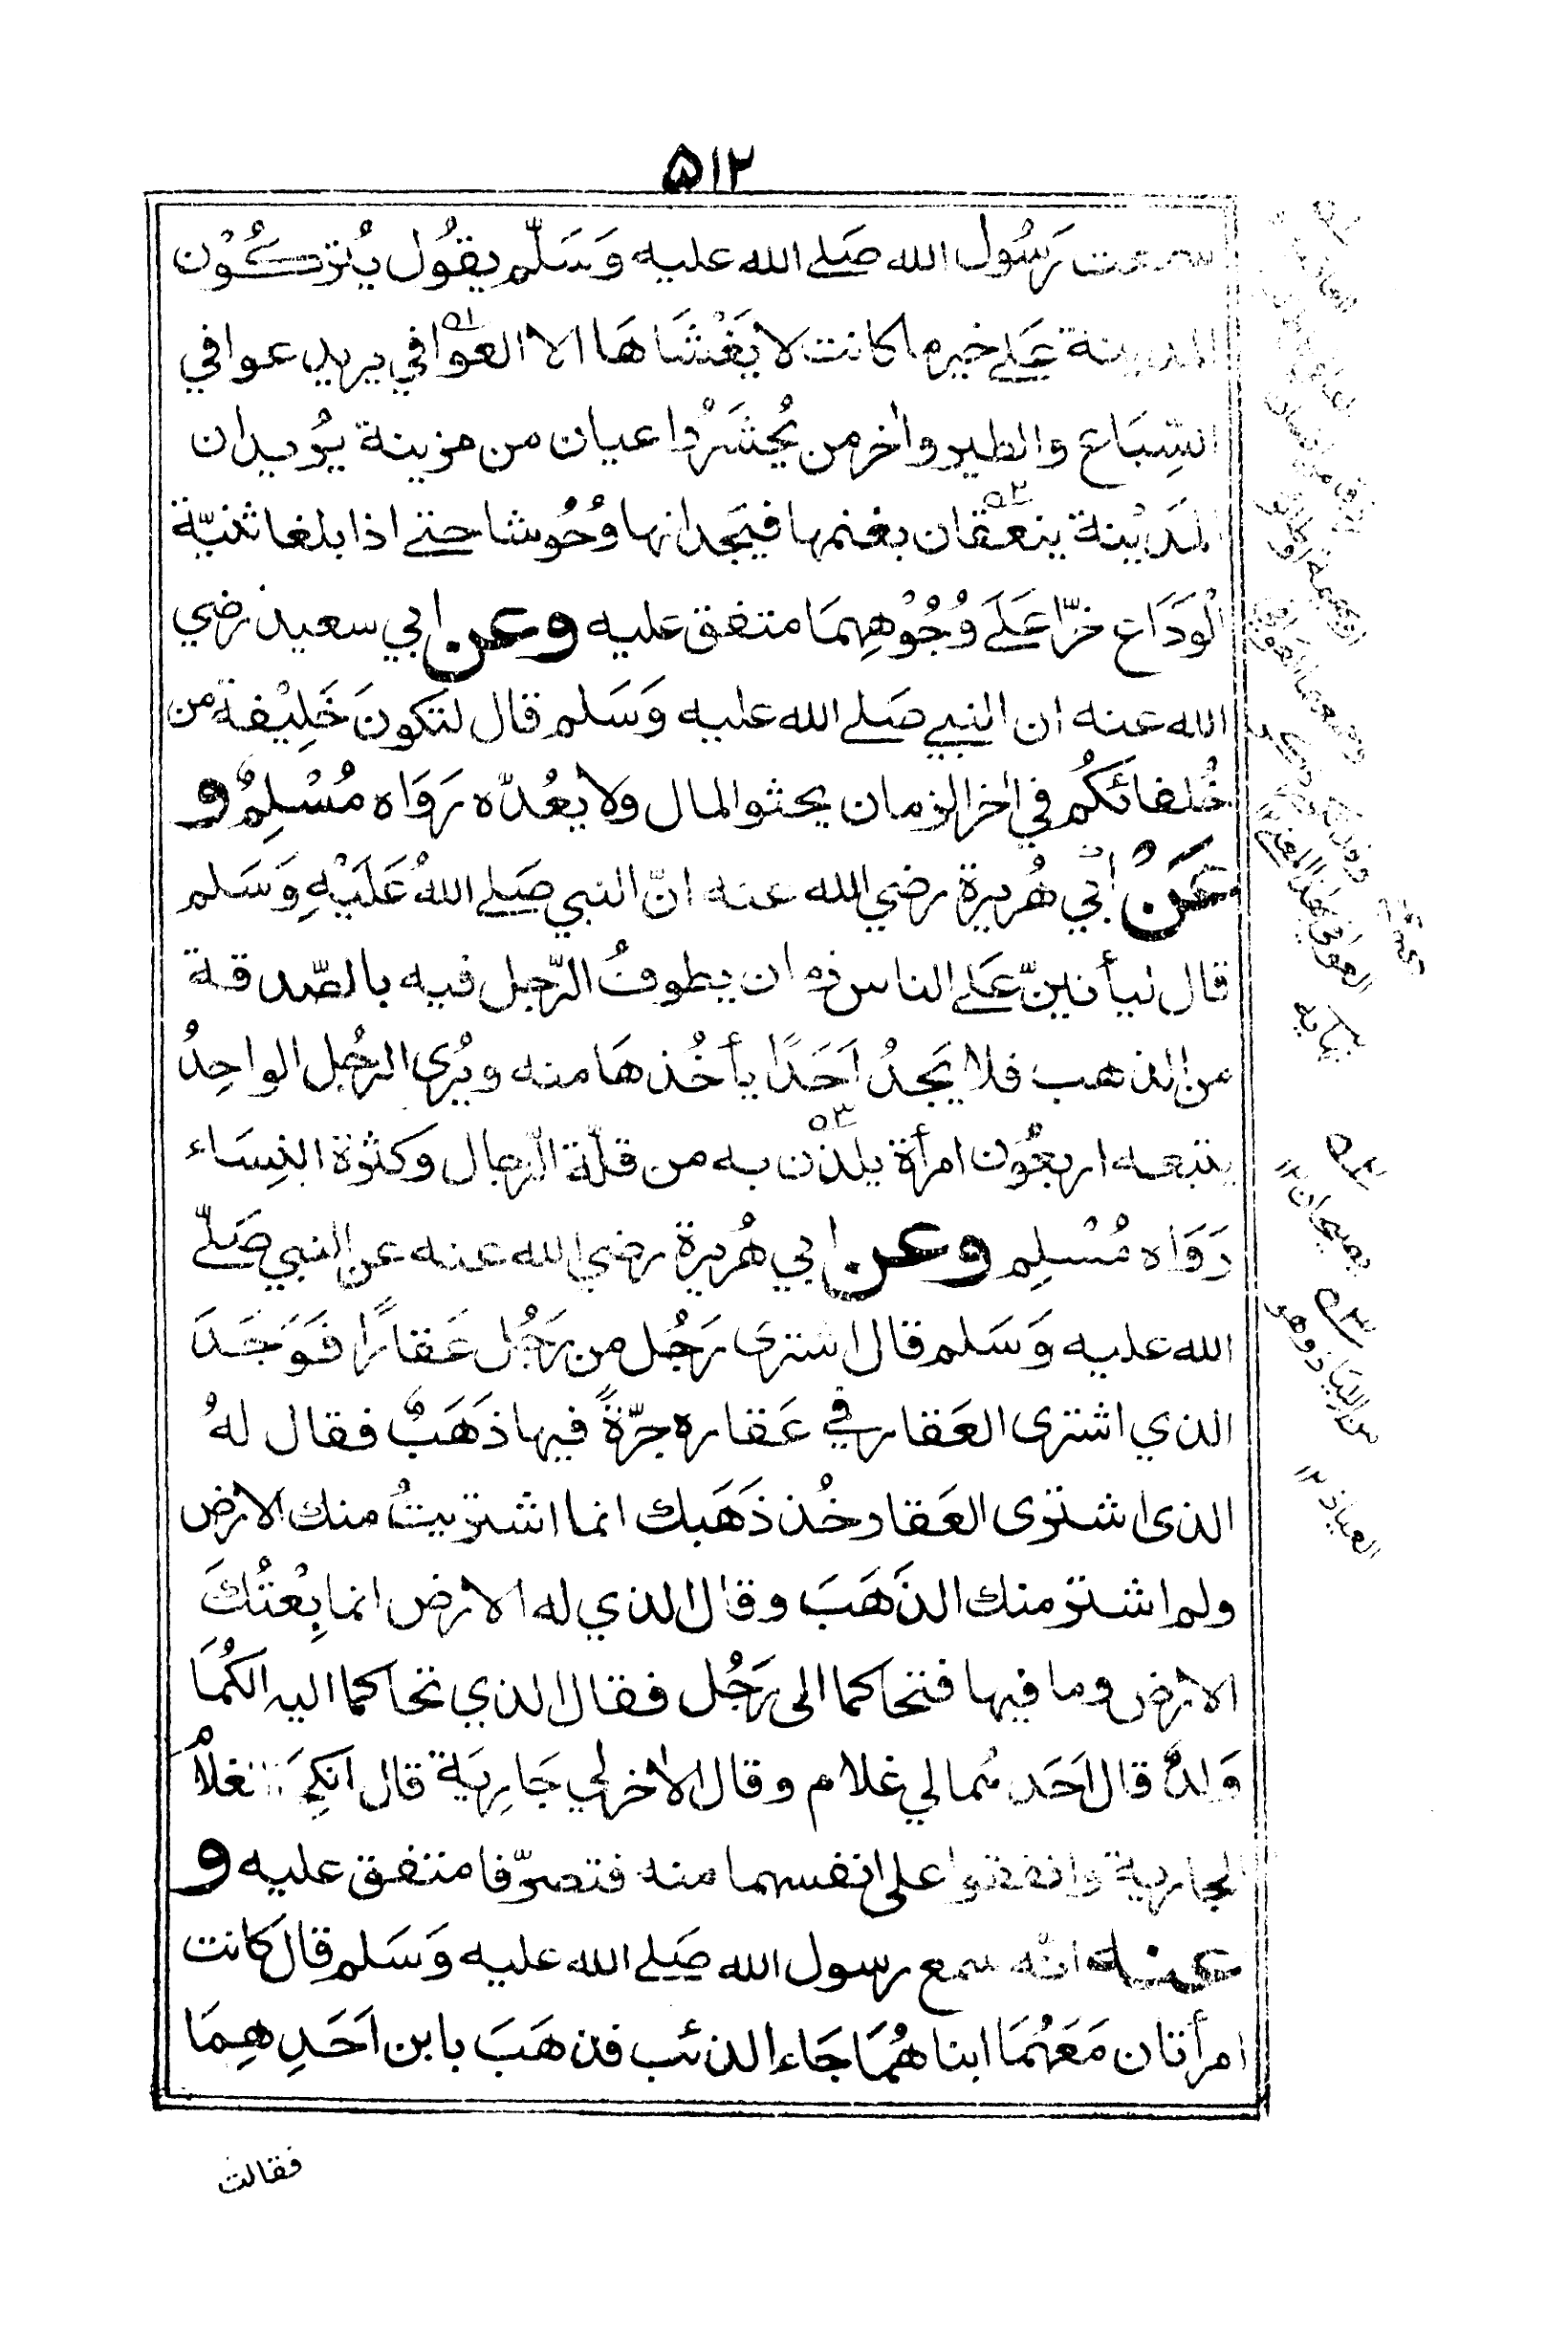 ۵۱۲
سمعت رَسُول الله صَلے الله عليه وَسَلّم يقُول يُتركُوْن
المدينة عَلے خير ما كانت لا يَغْشَاهَا الا العَوافي يريد عوافي
السِّبَاع والطير واٰخر من يُحْشَرُ داعيان من مزينة يُريدان
المَديْنة ينعقان بغنمها فيجدانها وُحُوشا حتے اذا بلغا ثنيّة
الْوَدَاع خرّا عَلَے وُجُوْهِهِمَا متفق عليه وعن ابي سعيد رضي
الله عنه ان النبي صَلے الله عليه وَسَلم قال لتكونَ خَلِيْفة من
خُلفائكُم في اٰخر الزمان يحثو المال ولا يعُدّه رَوَاه مُسْلِمٌ و
عَنْ اَبي هُريرة رضي الله عنه انّ النبي صَلے اللهُ عَلَيْهِ وَسَلم
قال ليأتينّ عَلے الناس زمان يطوفُ الرّجل فيه بالصّدقة
من الذهب فلا يَجدُ اَحَدًا يأخُذهَا منه ويُرى الرجُل الواحِدُ
يتبعه اربعُون امرأة يلذن به من قلّة الرّجال وكثرة النِسَاء
رَوَاه مُسْلِم وعن ابي هُريرة رضي الله عنه عن النبي صَلّے
الله عليه وَسَلم قال اشترى رَجُل من رَجُل عَقارًا فَوَجَدَ
الذي اشترى العَقار في عَقاره جرّةً فيها ذَهَبٌ فقال لهُ
الذى اشترى العَقار خُذ ذَهَبك انما اشتريتُ منك الارض
ولم اشتر منك الذَهَبَ وقال الذي له الارض انما بِعْتُكَ
الارض وما فيها فتحاكما الى رَجُل فقال الذي تحاكما اليه الكُمَا
وَلدٌ قال اَحَدهُما لي غلام وقال الاٰخر لي جَارِيَة قال اَنكِحَا الغلامَ
الجارية وانفقوا على انفسهما منه فتصرّفا متفق عليه و
عنه انّه سمع رسول الله صَلے الله عليه وَسَلم قال كانت
امرأتان مَعَهُمَا ابناهُمَا جَاء الذئب فذهَبَ بابن اَحَدِهِمَا
فقالت
العوافي بهذا المعنے ۱۲
نهايه
۲ه
يصيحان ۱۲
۳ه
من اللياذ وهو
العياذ ۱۲